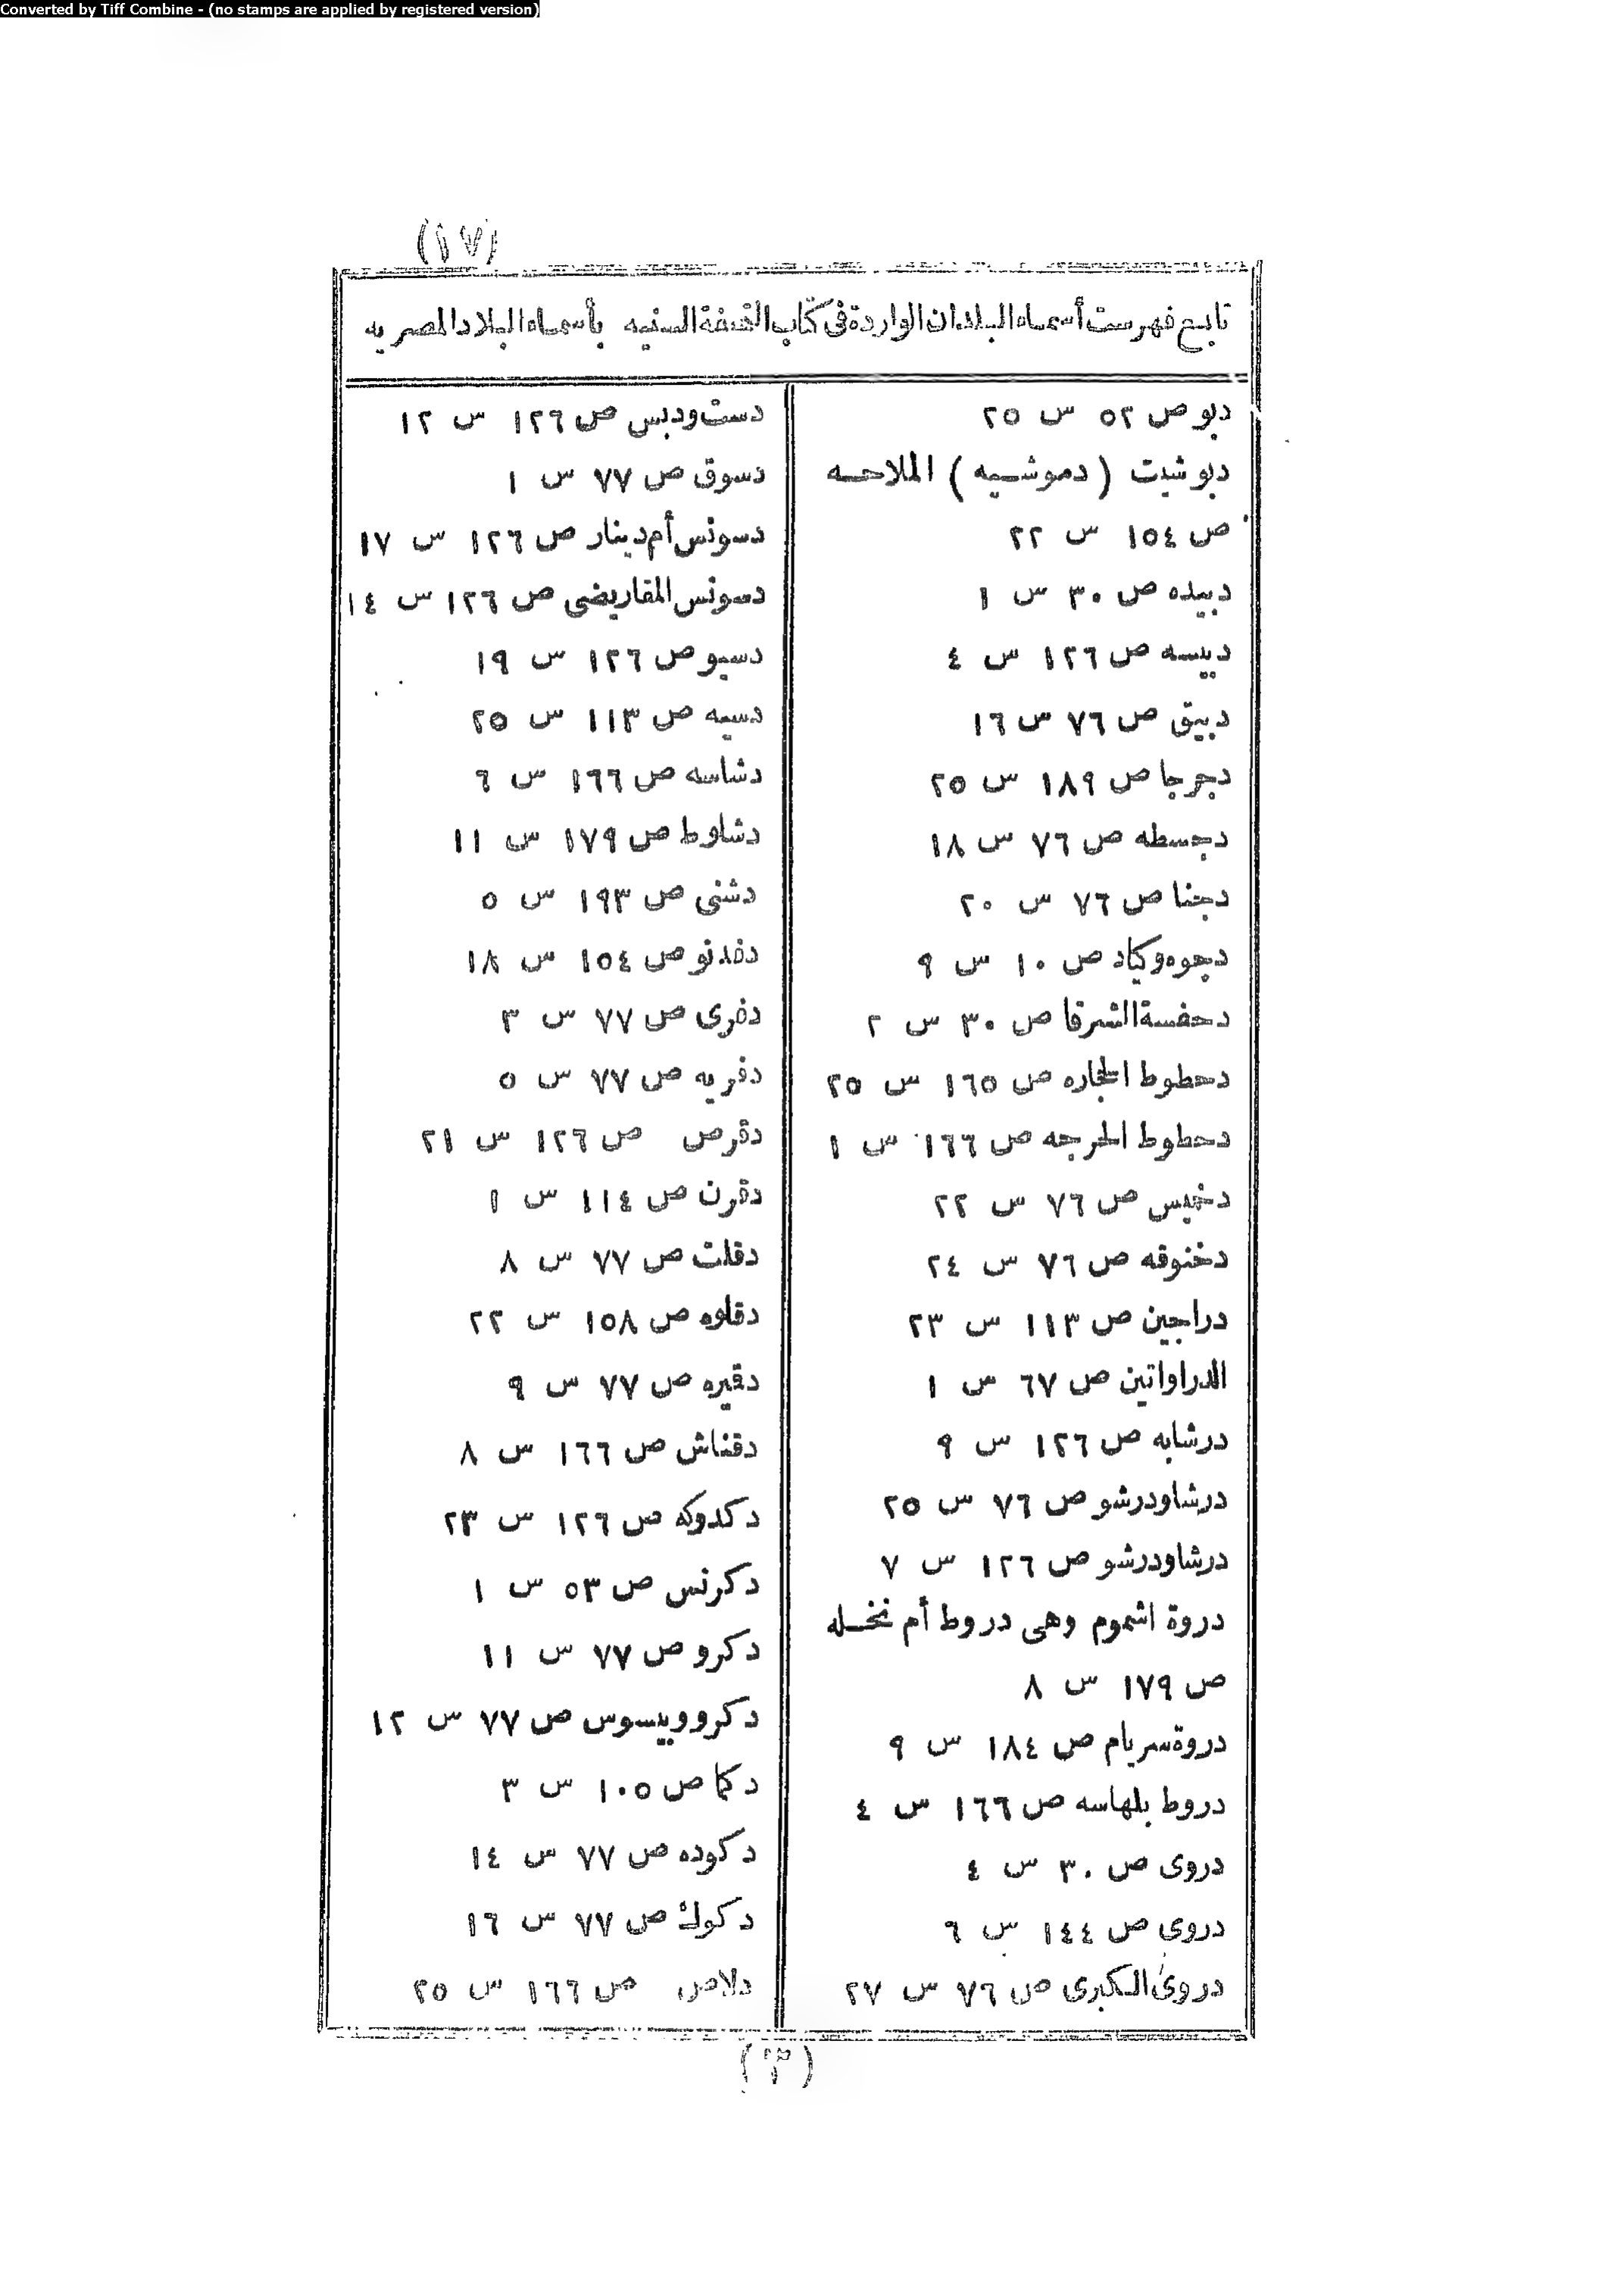 Converted by Tiff Combine - (no stamps are applied by registered version)
(١٧)
تابع فهرست أسماء البلدان الواردة فى كتاب التحفة السنيه بأسماء البلاد المصريه
دبو ص ٥٢ س ٢٥
دبو شيت (دموشيه) الملاحه
ص ١٥٤ س ٢٢
دبيده ص ٣٠ س ١
دبيسه ص ١٢٦ س ٤
دبيق ص ٧٦ س ١٦
دجرجا ص ١٨٩ س ٢٥
دجسطه ص ٧٦ س ١٨
دجنا ص ٧٦ س ٢٠
دجوه وكياد ص ١٠ س ٩
دحفسة الشرقا ص ٣٠ س ٢
دحطوط الحجاره ص ١٦٥ س ٢٥
دحطوط الحرجه ص ١٦٦ س ١
دخميس ص ٧٦ س ٢٢
دخنوقه ص ٧٦ س ٢٤
دراجين ص ١١٣ س ٢٣
الدراواتين ص ٦٧ س ١
درشابه ص ١٢٦ س ٩
درشاودرشو ص ٧٦ س ٢٥
درشاودرشو ص ١٢٦ س ٧
دروة اشموم وهى دروط أم نخله
ص ١٧٩ س ٨
دروة سريام ص ١٨٤ س ٩
دروط بلهاسه ص ١٦٦ س ٤
دروى ص ٣٠ س ٤
دروى ص ١٤٤ س ٦
دروى الكبرى ص ٧٦ س ٢٧
دست ودبس ص ١٢٦ س ١٢
دسوق ص ٧٧ س ١
دسونس أم دينار ص ١٢٦ س ١٧
دسونس المقاريضى ص ١٢٦ س ١٤
دسيو ص ١٢٦ س ١٩
دسيه ص ١١٣ س ٢٥
دشاسه ص ١٦٦ س ٦
دشاوط ص ١٧٩ س ١١
دشنى ص ١٩٣ س ٥
دفدنو ص ١٥٤ س ١٨
دفرى ص ٧٧ س ٣
دفريه ص ٧٧ س ٥
دقرص ص ١٢٦ س ٢١
دقرن ص ١١٤ س ١
دقلت ص ٧٧ س ٨
دقلوه ص ١٥٨ س ٢٢
دقيره ص ٧٧ س ٩
دقناش ص ١٦٦ س ٨
دكدوكه ص ١٢٦ س ٢٣
دكرنس ص ٥٣ س ١
دكرو ص ٧٧ س ١١
دكرووبيسوس ص ٧٧ س ١٢
دكما ص ١٠٥ س ٣
دكوده ص ٧٧ س ١٤
دكوك ص ٧٧ س ١٦
دلاص ص ١٦٦ س ٢٥
(٣)